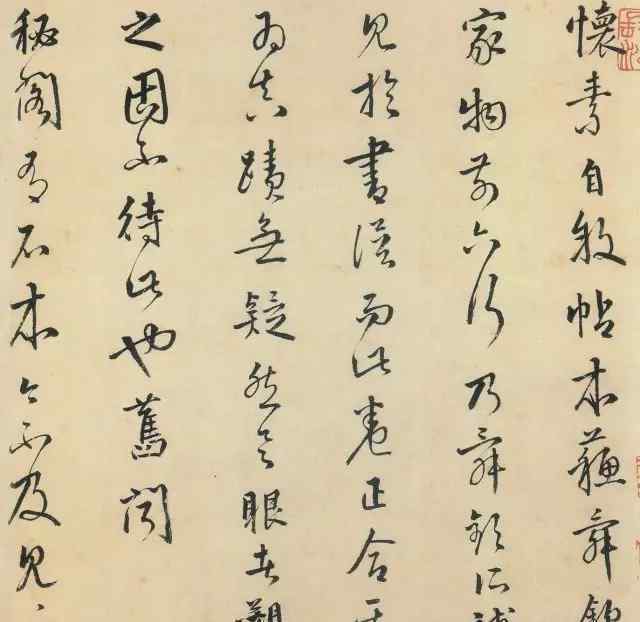 懷素自敘帖本蘓舜欽
家物前六行乃舜欽所補
見於書譜而此卷正合其
為真蹟無疑然具眼者觀
之固不待此也舊聞
秘閣有石本今不及見